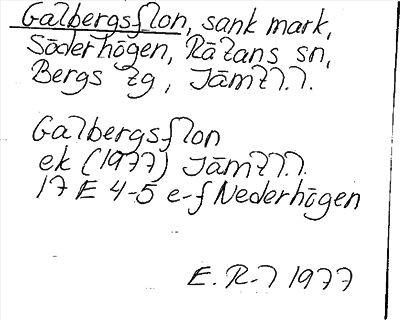 Galbergsflon, sank mark,
Söderhögen, Rätans sn,
Bergs tg, Jämtl.
Galbergsflon
ek (1977) Jämtl.
17 E 4-5 e-f Nederhögen
E. R-l 1977